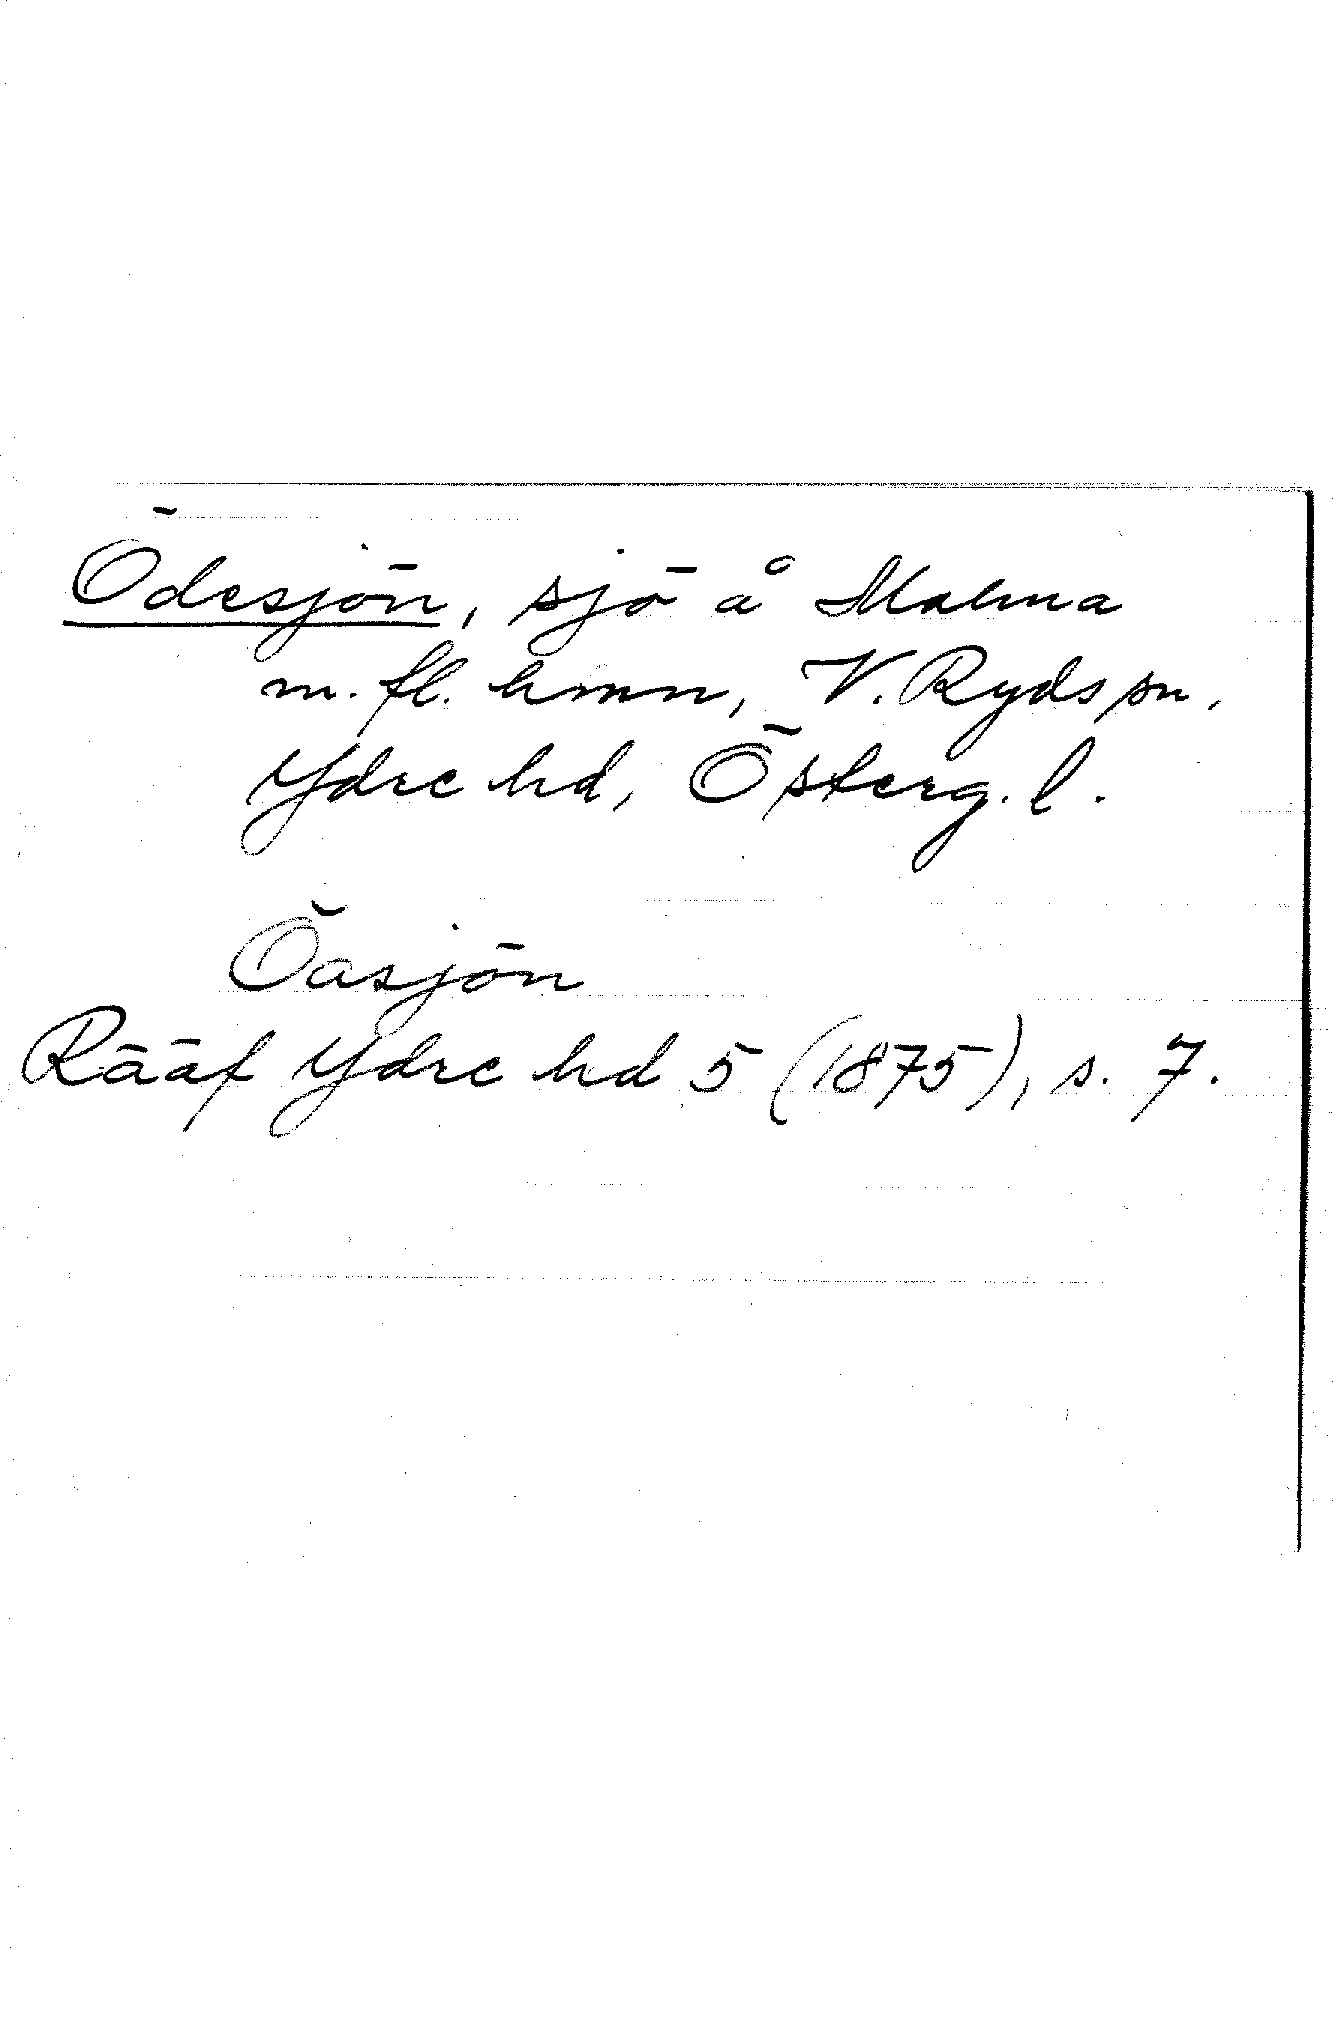 Ödesjön, sjö å Malma
m. fl. hmn, V. Ryds sn,
Ydre hd, Österg. l.
Öasjön
Rääf Ydre hd 5 (1875), s. 7.